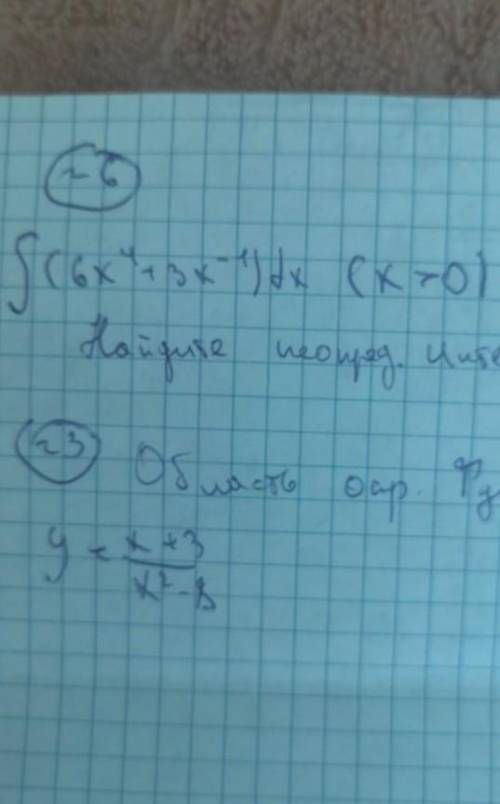 ~6
∫(6x⁴+3x⁻¹)dx (x>0)
Найдите неопред. инте
~3
Область опр.
y = x+3 / x²-